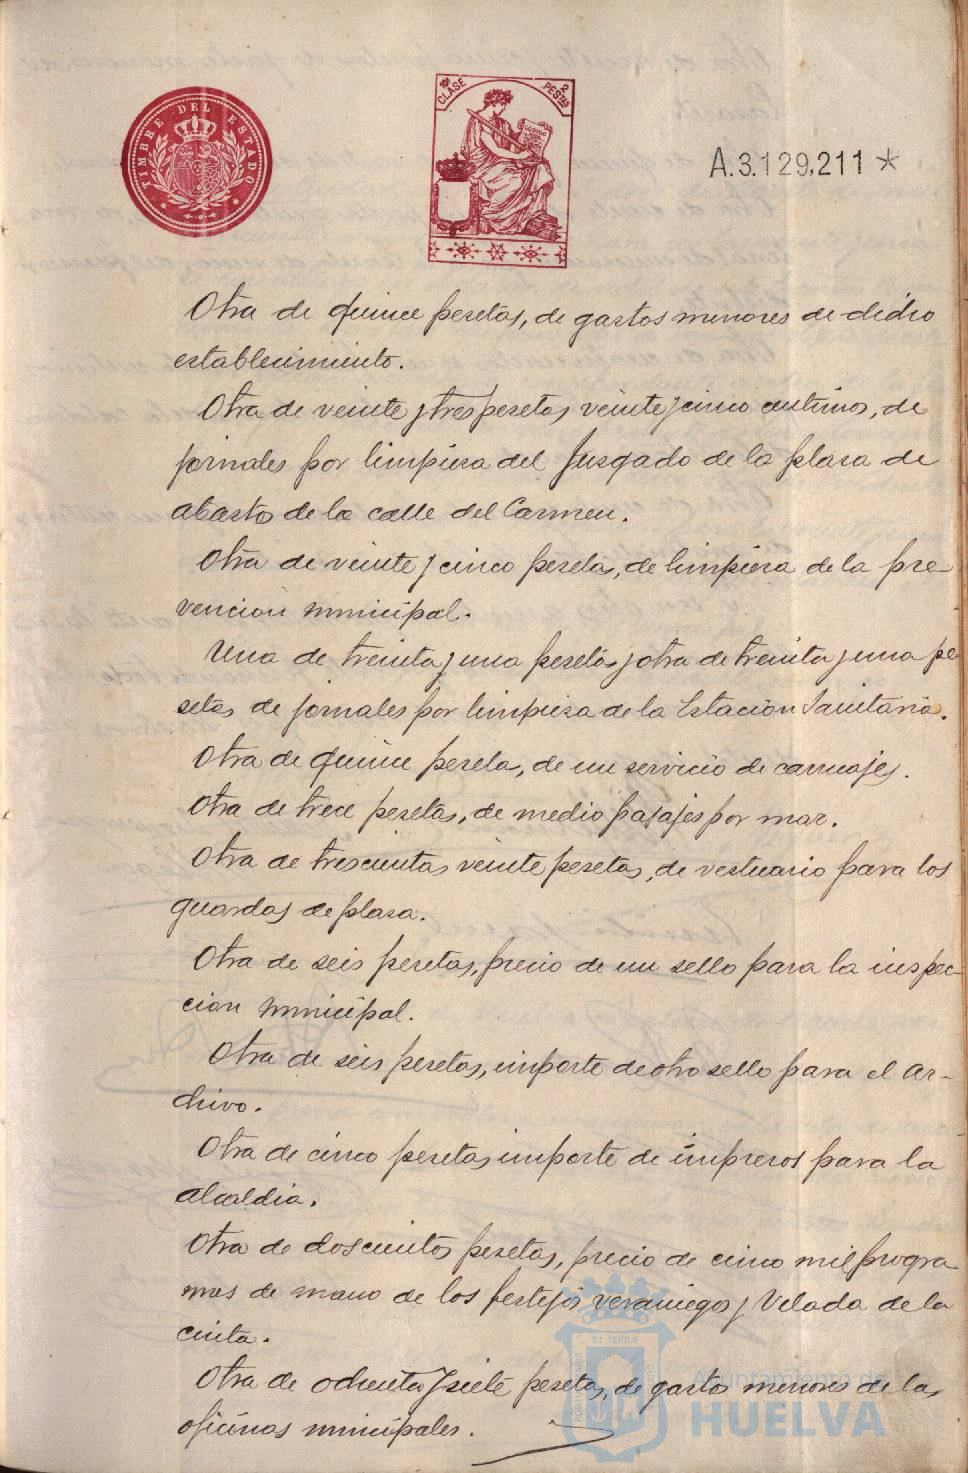 TIMBRE DEL ESTADO
10ª CLASE 2 PESETAS
CODIGO
A.3.129,211 *
Otra de quince pesetas, de gastos menores de dicho
establecimiento.
Otra de veinte y tres pesetas veinte y cinco centimos, de
jornales por limpieza del Juzgado de la plaza de
abastos de la calle del Carmen.
Otra de veinte y cinco pesetas, de limpieza de la pre-
vencion municipal.
Una de treinta y una pesetas y otra de treinta y una pe
setas de jornales por limpieza de la Estacion Sanitaria.
Otra de quince pesetas, de un servicio de carruajes.
Otra de trece pesetas, de medio bagajes por mar.
Otra de trescientas veinte pesetas, de vestuario para los
guardas de plaza.
Otra de seis pesetas, precio de un sello para la inspec-
cion municipal.
Otra de seis pesetas, importe de otro sello para el Ar-
chivo.
Otra de cinco pesetas importe de impresos para la
alcaldia.
Otra de doscientas pesetas, precio de cinco mil progra
mas de mano de los festejos veraniegos y Velada de la
cinta.
Otra de ochenta y siete pesetas, de gastos menores de las
oficinas municipales.
Ayuntamiento de
HUELVA